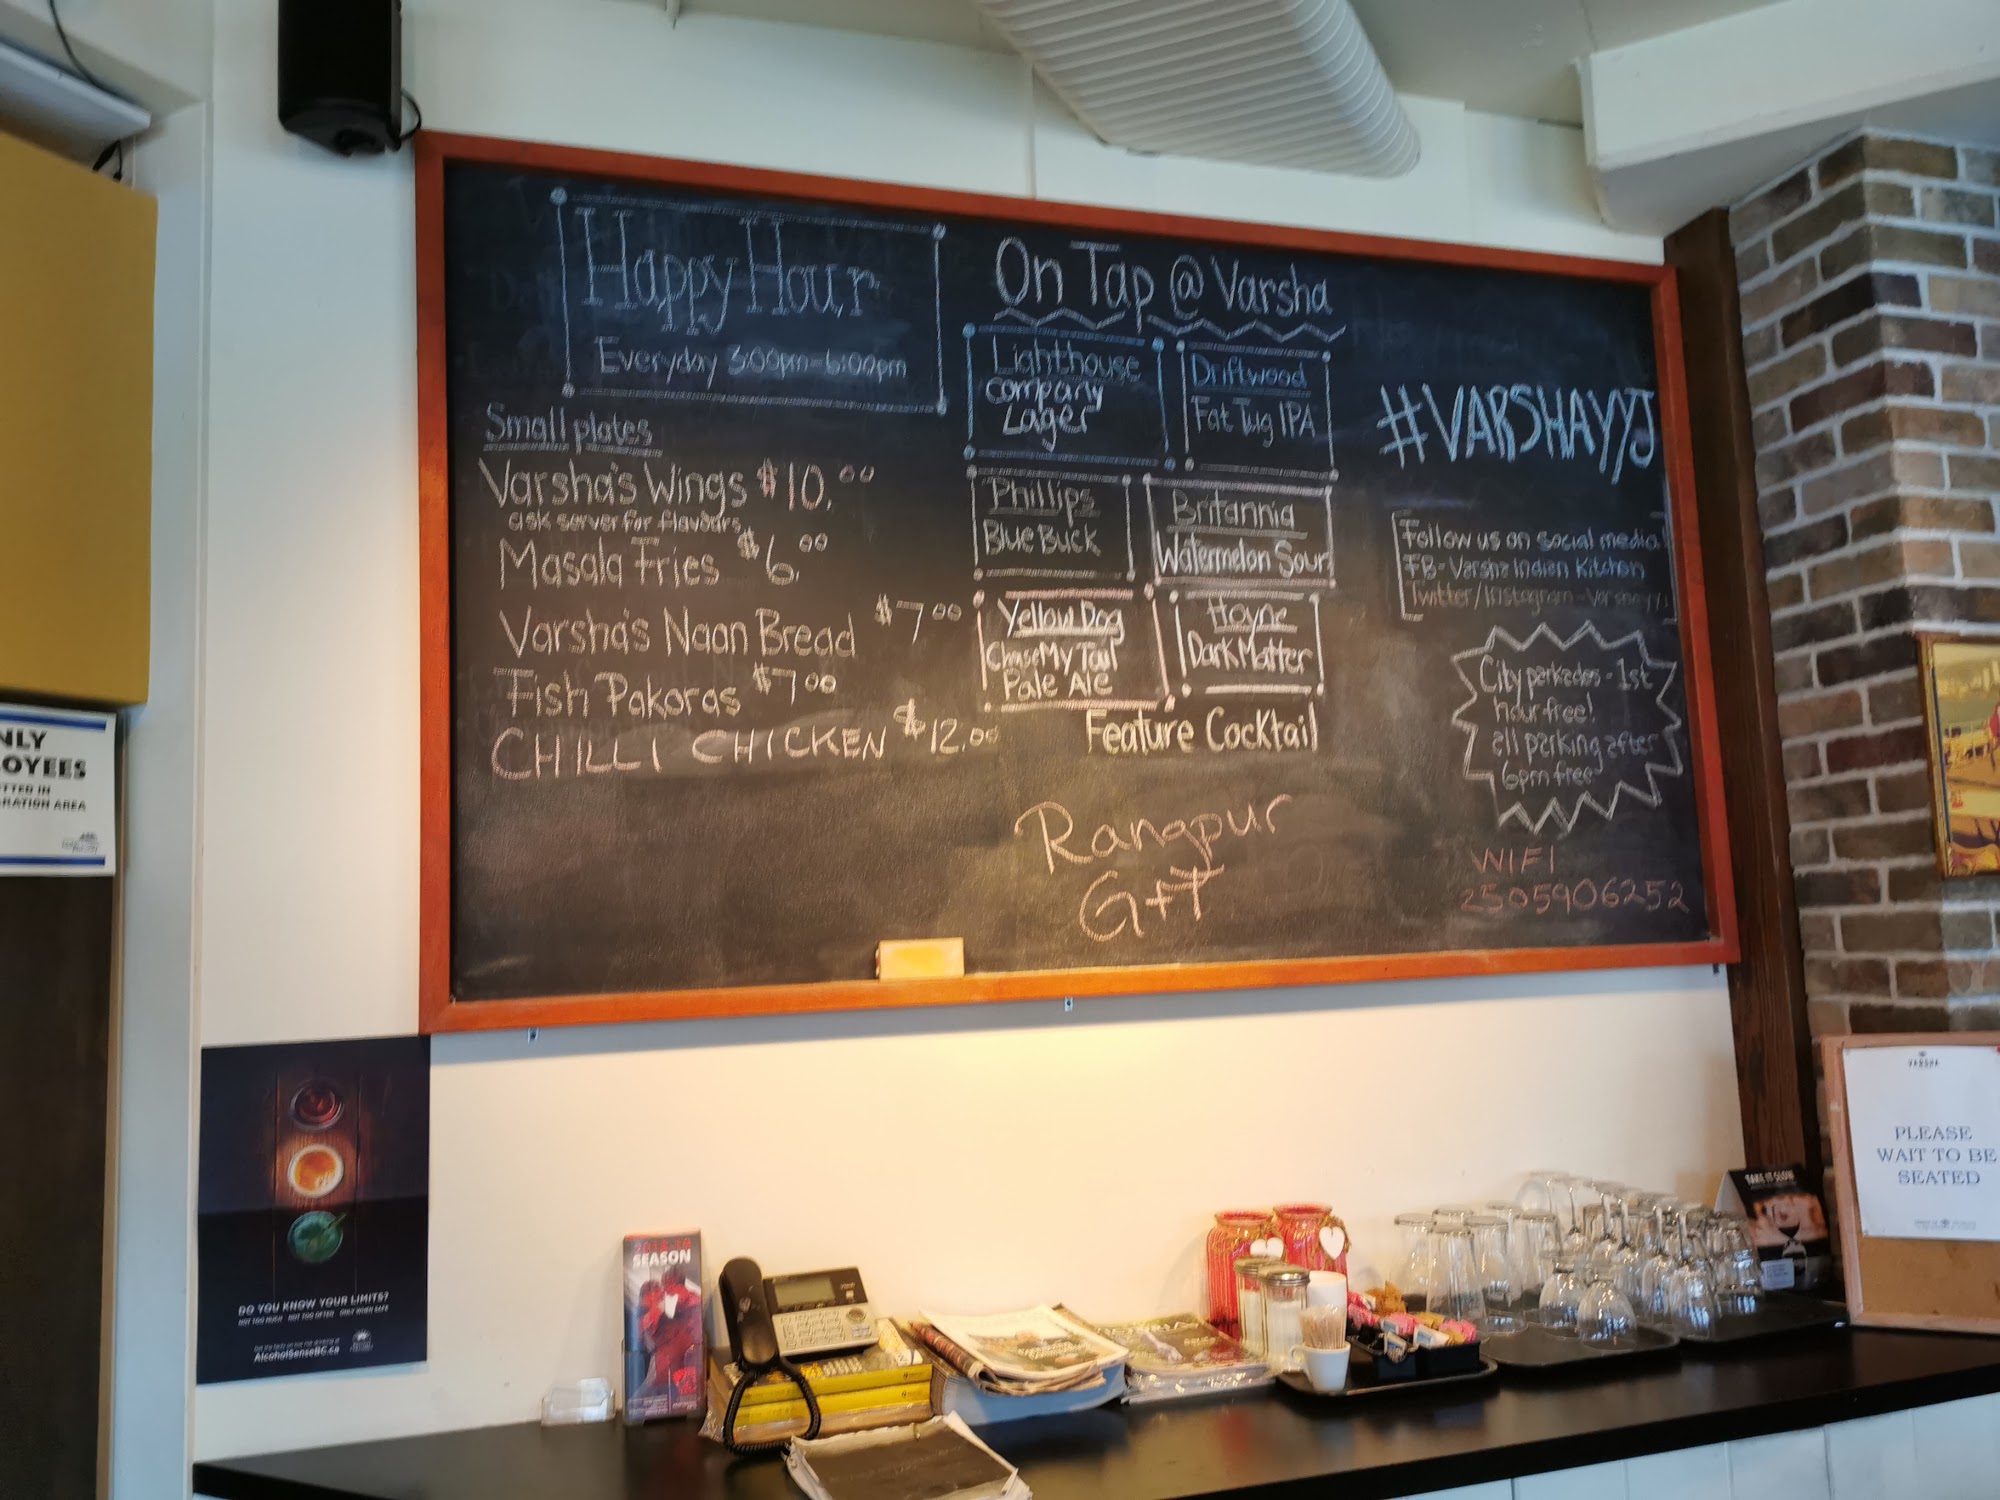 Happy Hour
Everyday 3:00pm-6:00pm
Small plates
Varsha's Wings $10.00
ask server for flavours
Masala Fries $6.00
Varsha's Naan Bread $7.00
Fish Pakoras $7.00
CHILLI CHICKEN $12.00
On Tap @ Varsha
Lighthouse
Company
Lager
Driftwood
Fat Tug IPA
Phillips
Blue Buck
Britannia
Watermelon Sour
Yellow Dog
Chase My Tail
Pale Ale
Hoyne
Dark Matter
Feature Cocktail
Rangpur
G+T
#VARSHAYYJ
Follow us on social media!
FB-Varsha Indian Kitchen
Twitter/Instagram-Varshayyj
City parkades-1st
hour free!
all parking after
6pm free
WIFI
2505906252
NLY
OYEES
TTED IN
RATION AREA
DO YOU KNOW YOUR LIMITS?
NOT TOO MUCH NOT TOO OFTEN ONLY WHEN SAFE
AlcoholSenseBC.ca
SEASON
TAKE IT SLOW
VARSHA
PLEASE
WAIT TO BE
SEATED